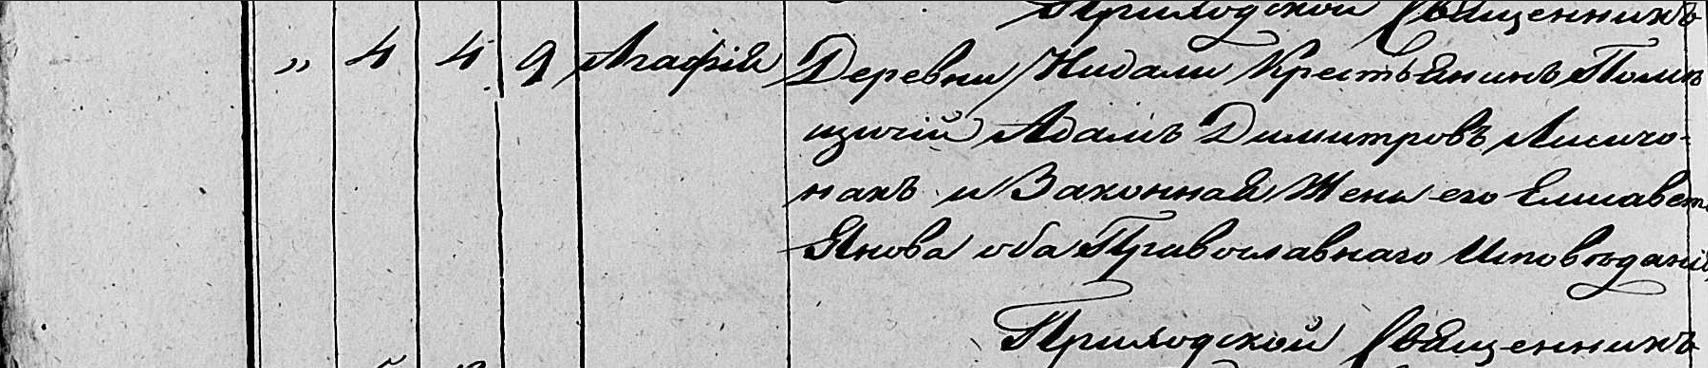 Приходской Священникъ
„ 4 4 9 Агафія Деревни Нидали Крестьянинъ Помѣ
щичій Адамъ Димитровъ Лисичо-
накъ и Законная Жена его Елисавет
Янова оба Православнаго Исповѣданія
Приходской Священникъ